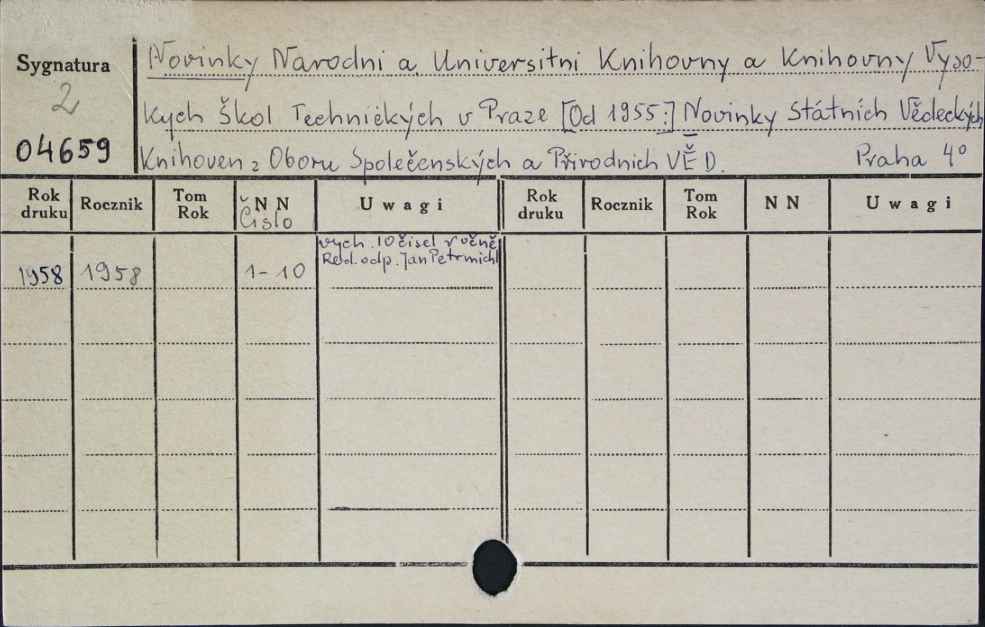 Sygnatura
2
04659
Novinky Narodni a Universitni Knihovny a Knihovny Vyso-
kych Škol Technických v Praze [Od 1955:] Novinky Státních Vědeckých
Knihoven z Oboru Společenských a Přirodnich VĚD. Praha 4°
Rok druku Rocznik Tom Rok NN Čislo Uwagi Rok druku Rocznik Tom Rok NN Uwagi
vych. 10 čisel ročně
Red. odp. Jan Petrmichl
1958 1958 1-10